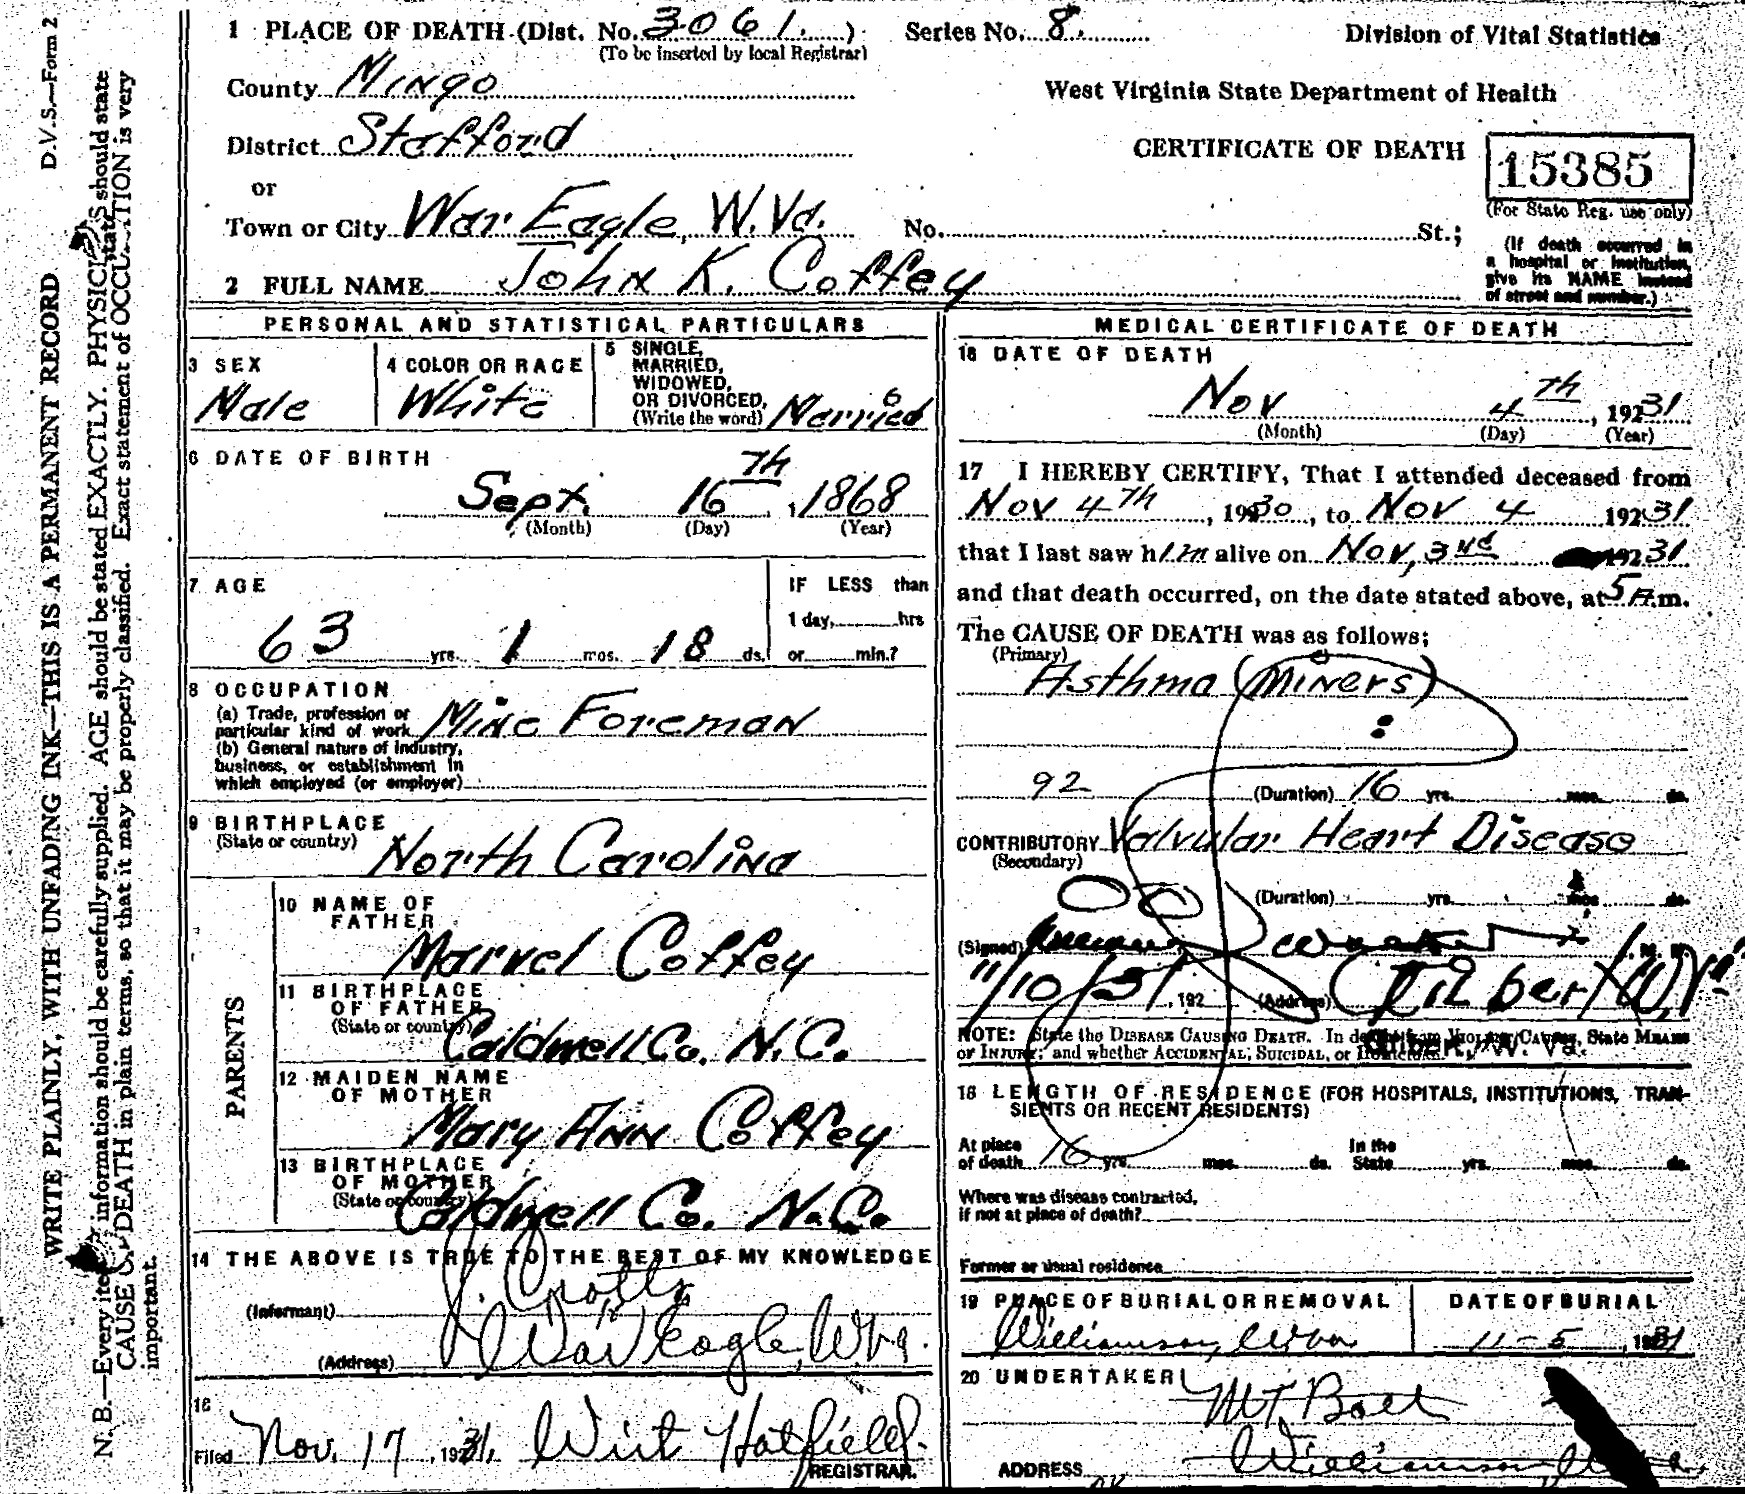 D.V.S.—Form 2
WRITE PLAINLY, WITH UNFADING INK—THIS IS A PERMANENT RECORD
N. B.—Every item of information should be carefully supplied. AGE should be stated EXACTLY. PHYSICIANS should state
CAUSE OF DEATH in plain terms, so that it may be properly classified. Exact statement of OCCUPATION is very
important.
1 PLACE OF DEATH (Dist. No. 3061.) Series No. 8.
(To be inserted by local Registrar)
County Mingo
District Stafford
or
Town or City War Eagle, W.Va. No. St.;
2 FULL NAME John K. Coffey
Division of Vital Statistics
West Virginia State Department of Health
CERTIFICATE OF DEATH
15385
(For State Reg. use only)
(If death occurred in
a hospital or institution,
give its NAME instead
of street and number.)
PERSONAL AND STATISTICAL PARTICULARS
3 SEX
Male
4 COLOR OR RACE
White
5 SINGLE,
MARRIED,
WIDOWED,
OR DIVORCED,
(Write the word) Married
6
6 DATE OF BIRTH
Sept. 16th, 1868
(Month) (Day) (Year)
7 AGE
63 yrs. 1 mos. 18 ds.
IF LESS than
1 day, hrs
or min.?
8 OCCUPATION
(a) Trade, profession or
particular kind of work Mine Foreman
(b) General nature of industry,
business, or establishment in
which employed (or employer)
9 BIRTHPLACE
(State or country) North Carolina
PARENTS
10 NAME OF
FATHER
Marvel Coffey
11 BIRTHPLACE
OF FATHER
(State or country)
Caldwell Co. N.C.
12 MAIDEN NAME
OF MOTHER
Mary Ann Coffey
13 BIRTHPLACE
OF MOTHER
(State or country)
Caldwell Co. N.C.
14 THE ABOVE IS TRUE TO THE BEST OF MY KNOWLEDGE
(Informant) J.
(Address) War Eagle, W.Va.
Filed Nov. 17, 1931, Wirt Hatfield.
REGISTRAR.
MEDICAL CERTIFICATE OF DEATH
16 DATE OF DEATH
Nov 4th, 19231
(Month) (Day) (Year)
17 I HEREBY CERTIFY, That I attended deceased from
Nov 4th, 1930, to Nov 4 19231
that I last saw him alive on Nov, 3rd 19231
and that death occurred, on the date stated above, at 5 A.m.
The CAUSE OF DEATH was as follows;
(Primary)
Asthma (Miners)
92 (Duration) 16 yrs. mos. ds.
CONTRIBUTORY Valvular Heart Disease
(Secondary)
(Duration) yrs. mos ds.
(Signed)
11/10/31, 192 (Address) Gilbert W.Va
NOTE: State the DISEASE CAUSING DEATH. In deaths from VIOLENT CAUSES, State MEANS
OF INJURY; and whether ACCIDENTAL, SUICIDAL, or HOMICIDAL.
18 LENGTH OF RESIDENCE (FOR HOSPITALS, INSTITUTIONS, TRAN-
SIENTS OR RECENT RESIDENTS)
At place In the
of death 16 yrs. mos. ds. State yrs. mos. ds.
Where was disease contracted,
if not at place of death?
Former or usual residence
19 PLACE OF BURIAL OR REMOVAL
Williamson, W Va
DATE OF BURIAL
11-5, 1931
20 UNDERTAKER
ADDRESS Williamson